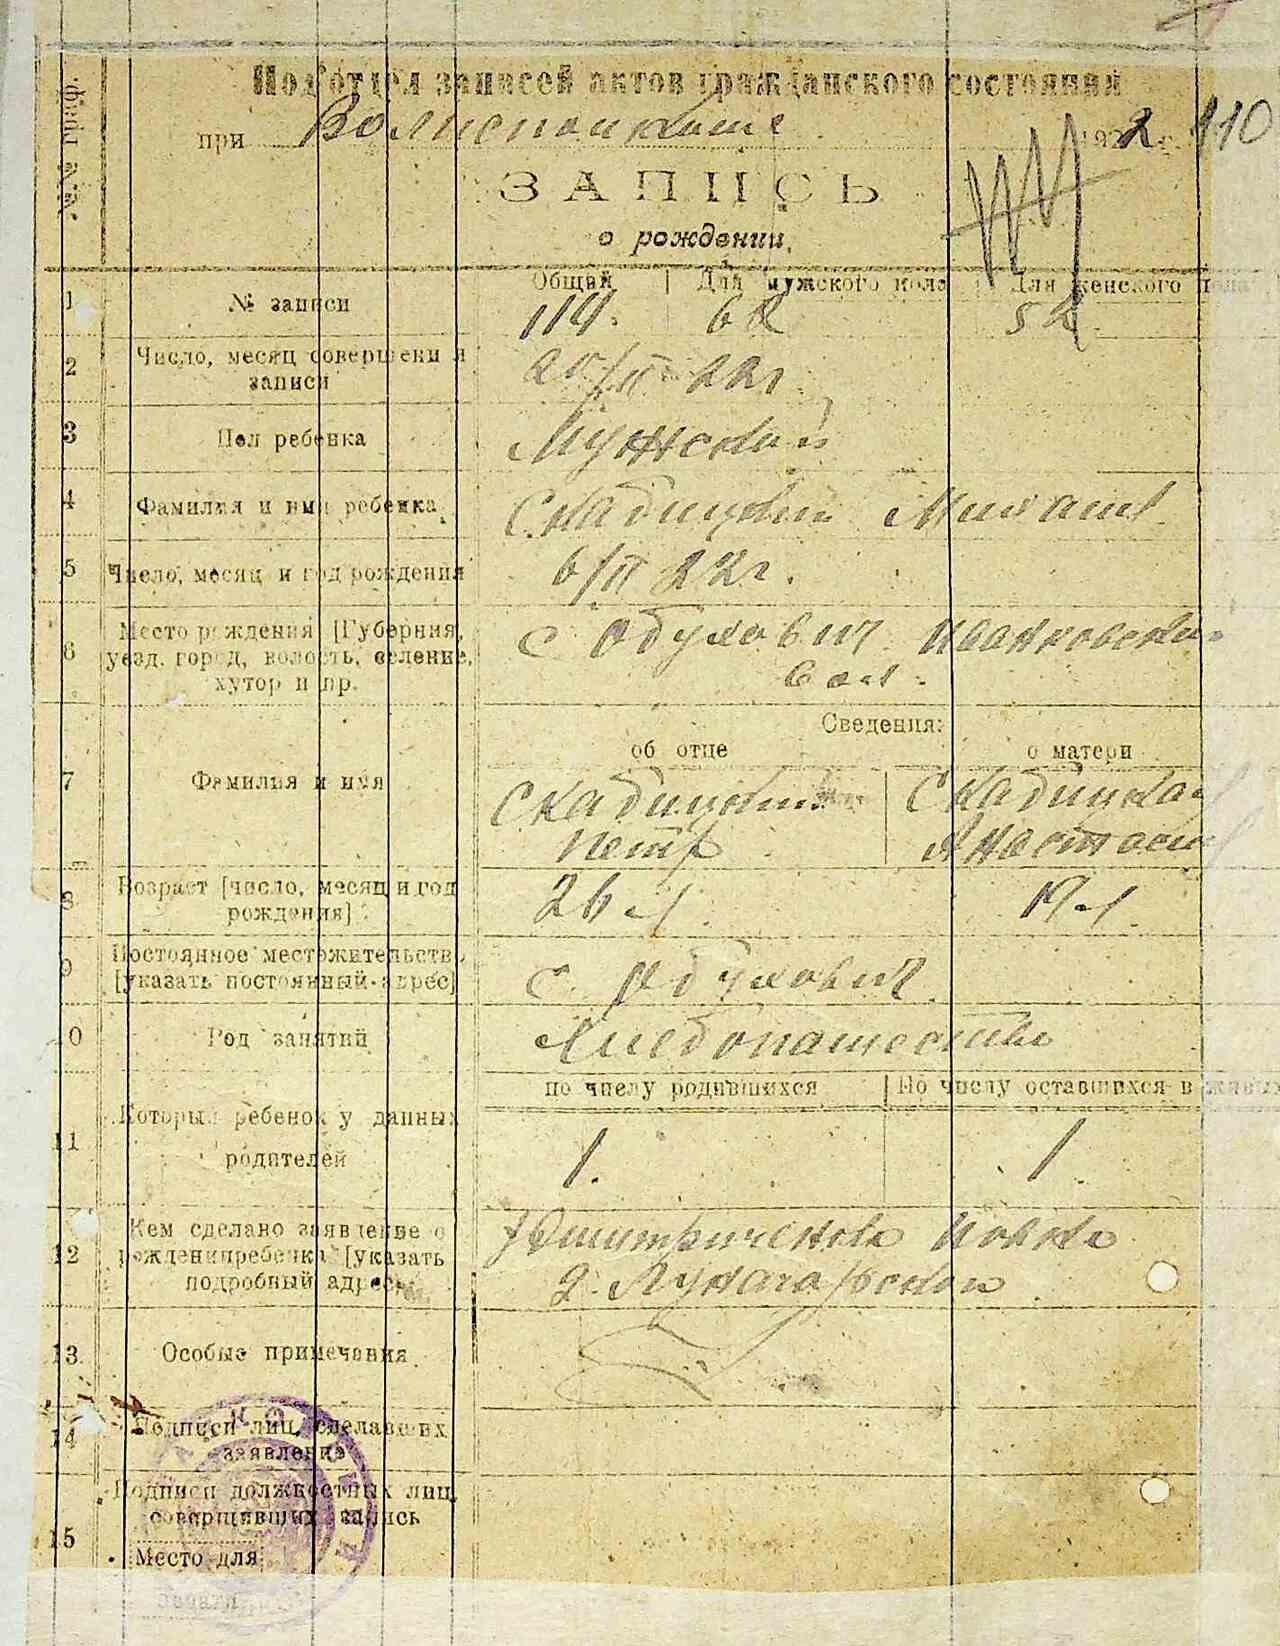 Подотдел записей актов гражданского состояния
при Волисполкоме 1922 г. 110
№№ граф.
ЗАПИСЬ
о рождении.
Общий Для мужского пола Для женского пола
1 № записи 114. 62 52.
2 Число, месяц совершения записи 20/II 22г.
3 Пол ребенка Мужской
4 Фамилия и имя ребенка
5 Число, месяц и год рождения 6/II 22г.
6 Место рождения [Губерния,
уезд, город, волость, селение,
хутор и пр. с. вол.
Сведения:
об отце о матери
7 Фамилия и имя
Петр Анастасия
8 Возраст [число, месяц и год
рождения] 26 л. 19 л.
9 Постоянное местожительство
[указать постоянный адрес] с.
10 Род занятий Хлебопашество
по числу родившихся По числу оставшихся в живых
11 Который ребенок у данных
родителей 1. 1.
12 Кем сделано заявление о
рождении ребенка [указать
подробный адрес]
13. Особые примечания
14 Подписи лиц, сделавших
заявление
15 Подписи должностных лиц,
совершивших запись
Место для
печати